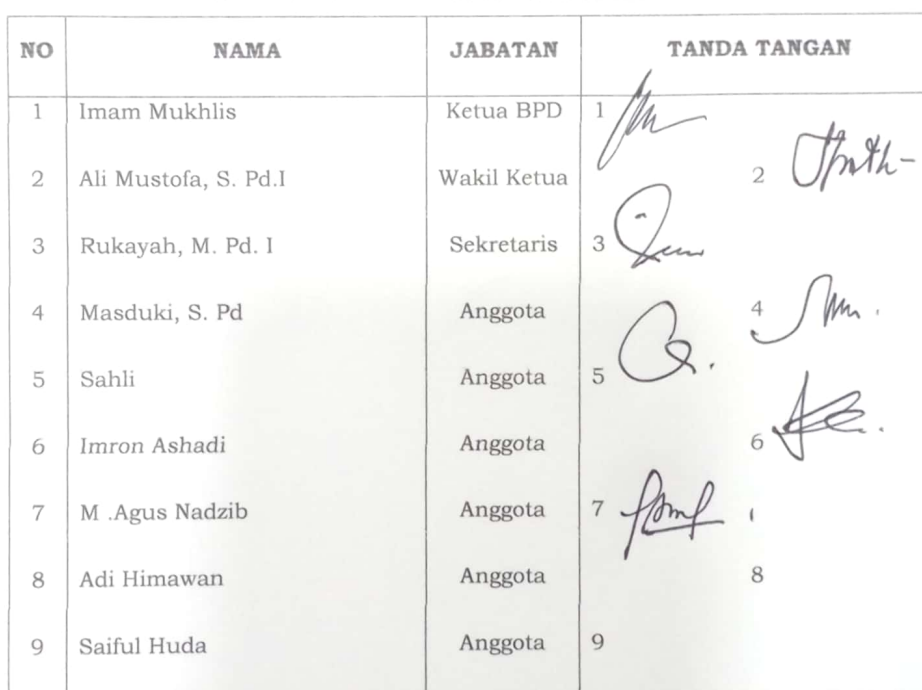 NO NAMA JABATAN TANDA TANGAN
1 Imam Mukhlis Ketua BPD 1
2 Ali Mustofa, S. Pd.I Wakil Ketua 2
3 Rukayah, M. Pd. I Sekretaris 3
4 Masduki, S. Pd Anggota 4
5 Sahli Anggota 5
6 Imron Ashadi Anggota 6
7 M .Agus Nadzib Anggota 7
8 Adi Himawan Anggota 8
9 Saiful Huda Anggota 9